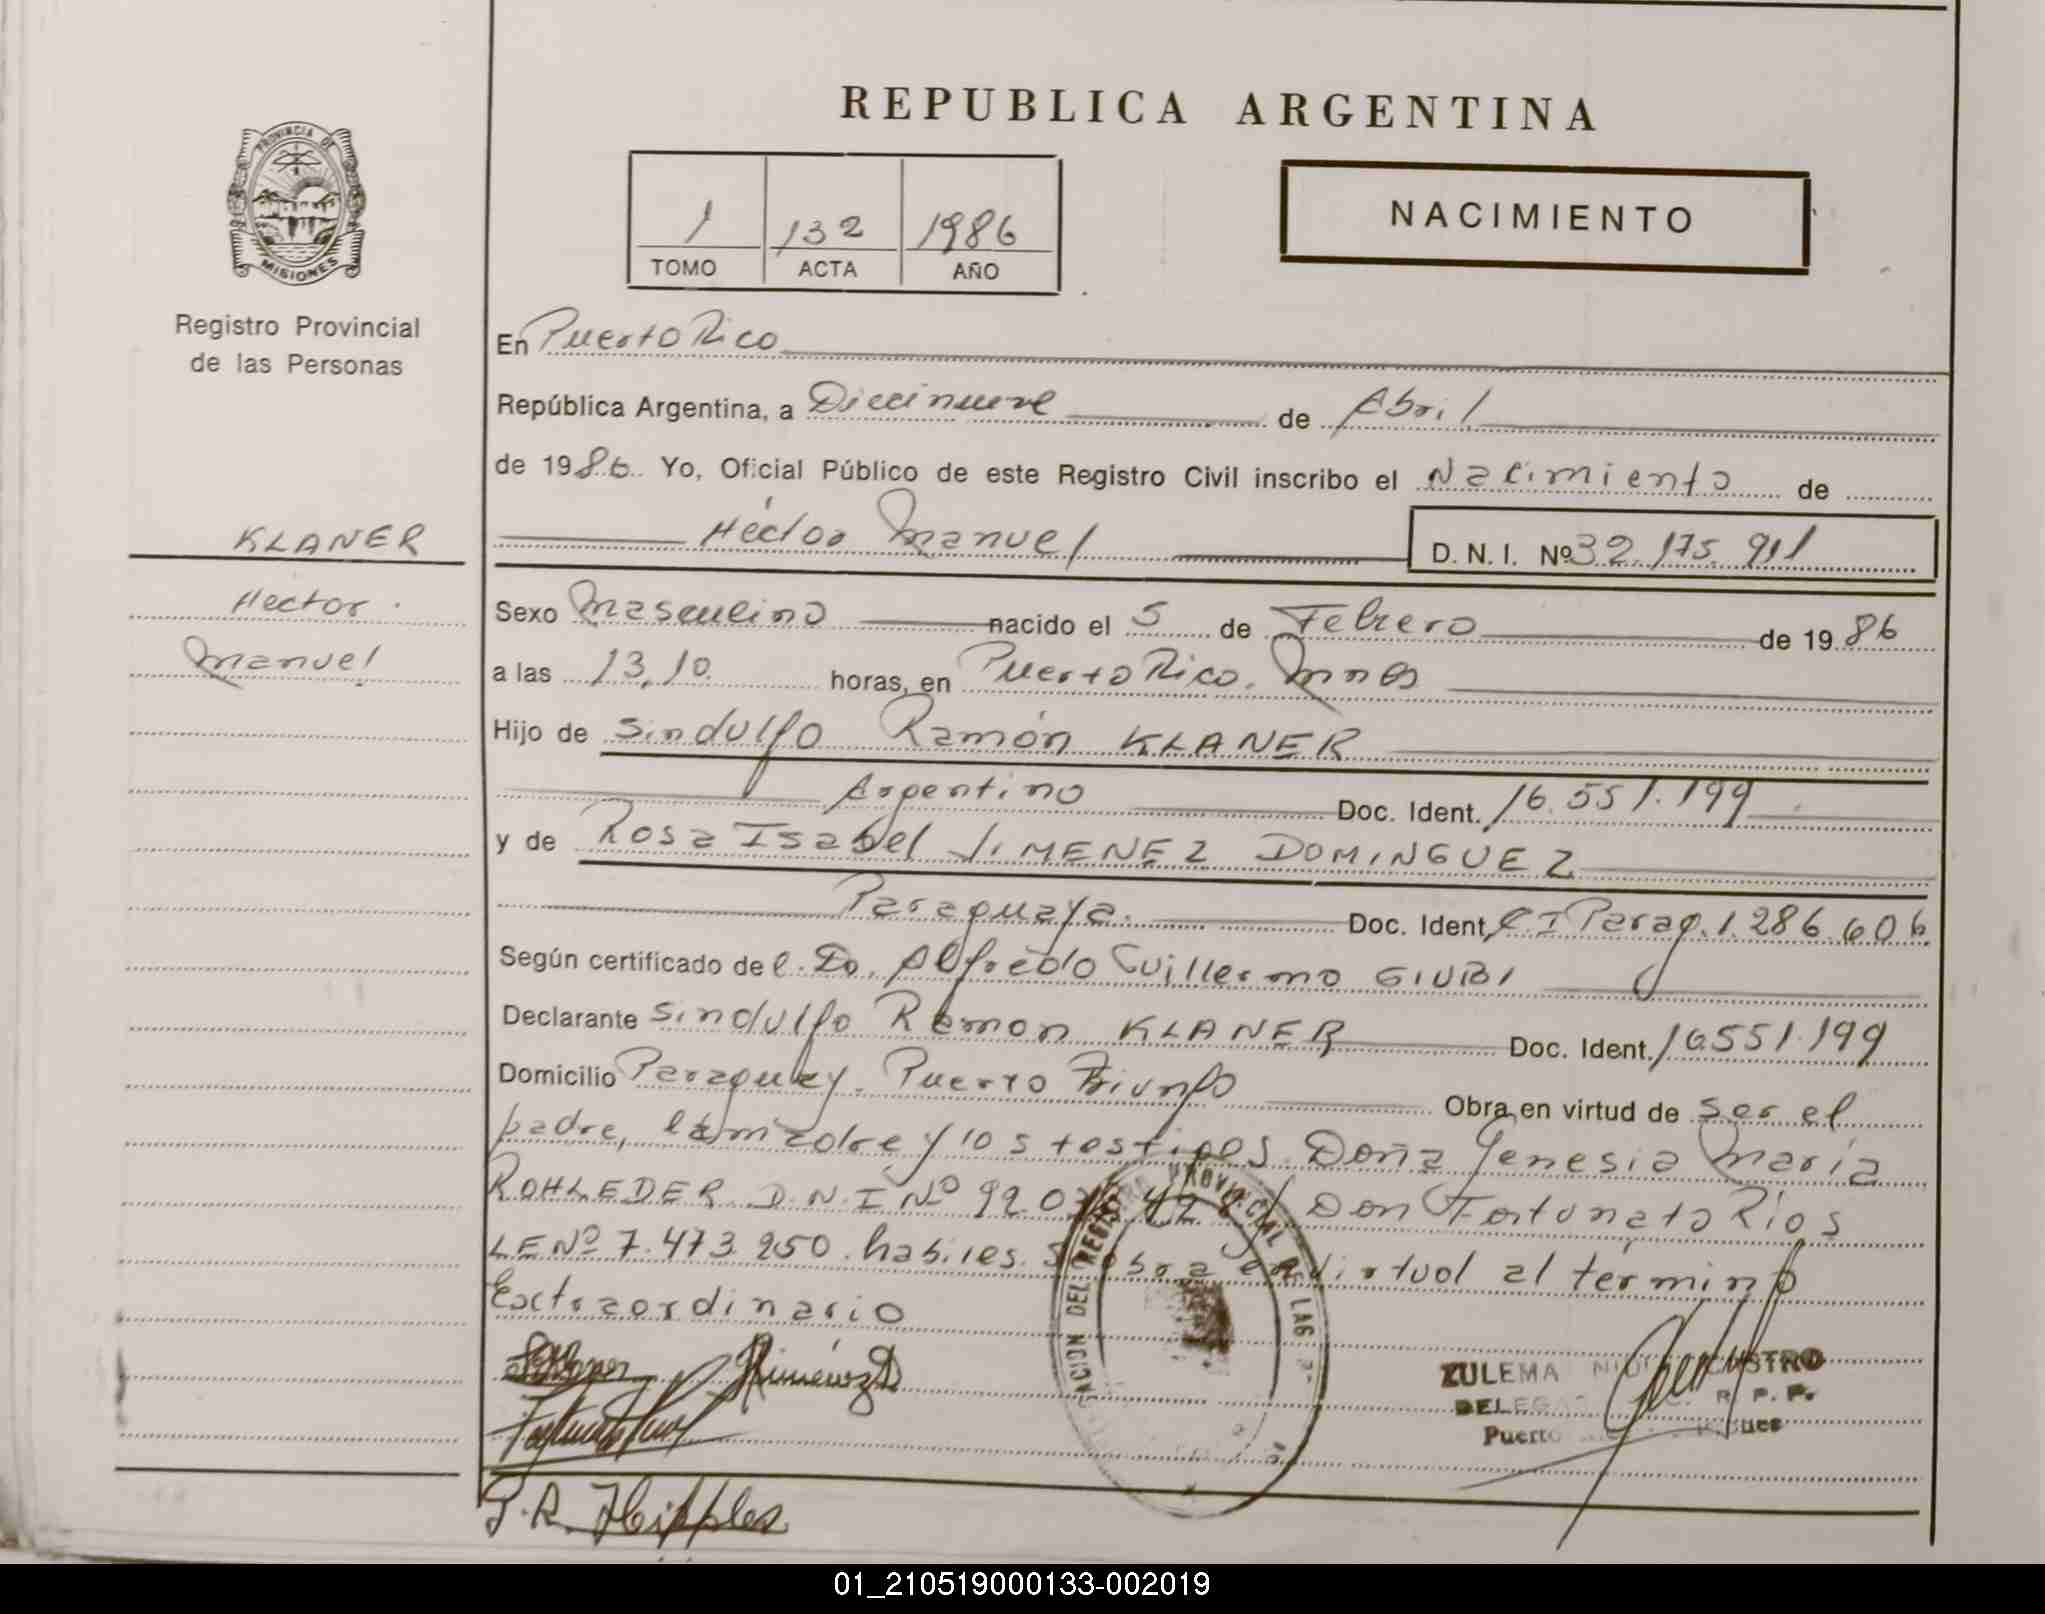 REPUBLICA ARGENTINA
PROVINCIA DE
MISIONES
Registro Provincial
de las Personas
1 132 1986
TOMO ACTA AÑO
NACIMIENTO
En Puerto Rico
República Argentina, a Diecinueve de Abril
de 1986. Yo, Oficial Público de este Registro Civil inscribo el Nacimiento de
KLANER
Héctor Manuel D.N.I. Nº 32.175.911
Hector
Manuel
Sexo Masculino nacido el 5 de Febrero de 1986
a las 13,10 horas, en Puerto Rico. Mnes
Hijo de Sindulfo Ramón KLANER
Argentino Doc. Ident. 16.551.199
y de Rosa Isabel JIMENEZ DOMINGUEZ
Paraguaya. Doc. Ident. C.I Parag. 1.286.606
Según certificado del Dr. Alfredo Guillermo GIUBI
Declarante Sindulfo Ramon KLANER Doc. Ident. 16551.199
Domicilio Paraguay. Puerto Triunfo Obra en virtud de ser el
padre, la madre y los testigos. Doña Genesia María
ROHLEDER D.N.I Nº 92.0 Don Fortunato Rios
LE Nº 7.473.250. habiles. Se obra en virtud al término
Extraordinario
DEL REGISTRO PROVINCIAL DE LAS
Jiménez D
ZULEMA CASTRO
R. P. P.
Puerto
01_210519000133-002019